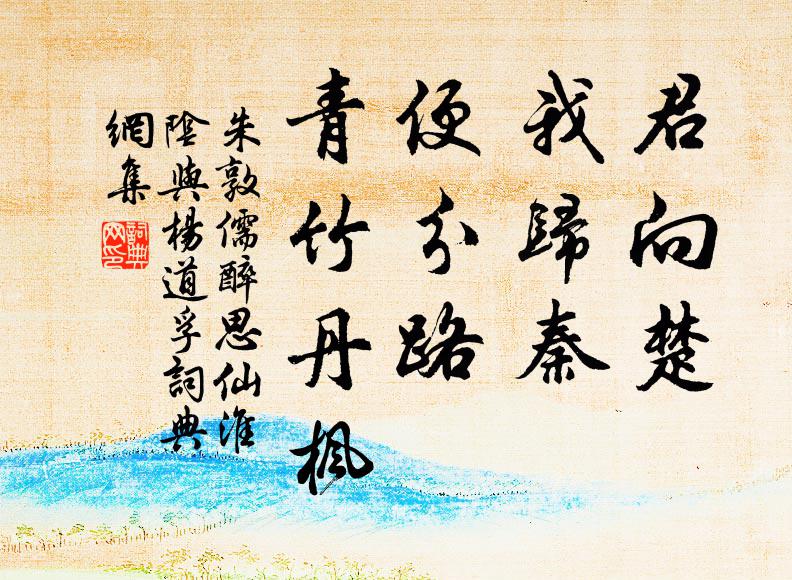 君向楚
我歸秦
便分路
青竹丹楓
朱敦儒醉思仙淮
陰與楊道孚詞典
網集
詞典
网印